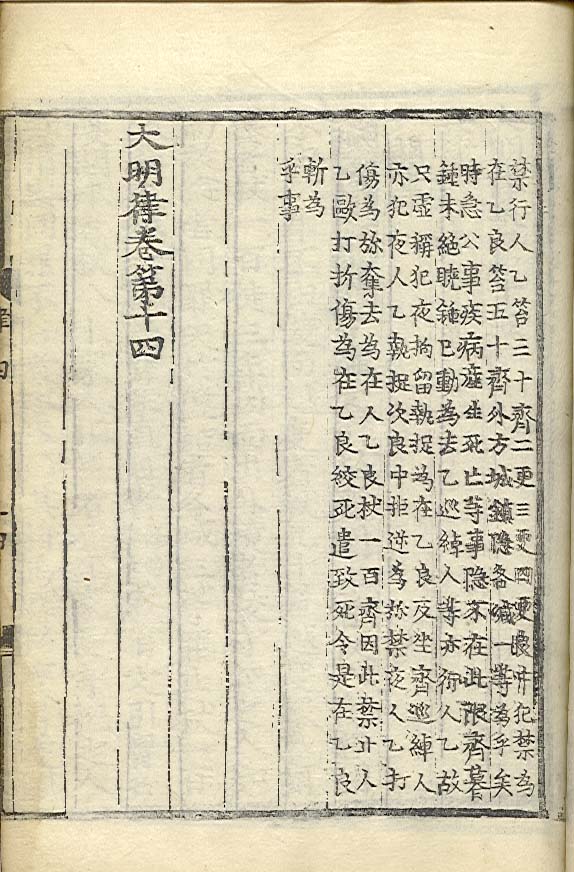 禁行人乙笞三十齊二更三更四更良中犯禁為
在乙良笞五十齊外方城鎮隱各減一等為乎矣
時急公事疾病産生死亡等事隱不在此限齊暮
鍾未絶曉鍾已動為去乙巡綽人等亦行人乙故
只虛稱犯夜拘留執捉為在乙良反坐齊巡綽人
亦犯夜人乙執捉次良中拒逆為旀禁夜人乙打
傷為旀奪去為在人乙良杖一百齊因此禁止人
乙歐打折傷為在乙良絞死遣致死令是在乙良
斬為
乎事
大明律卷第十四